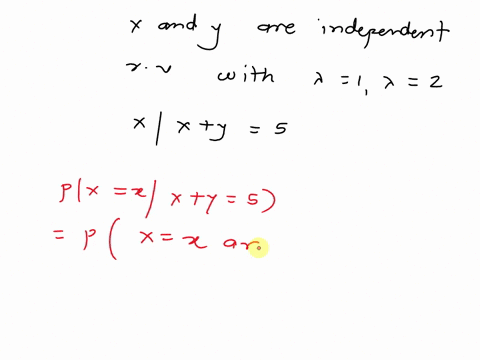 x and y are independent
r.v with λ = 1, λ = 2
x | x+y = 5
P(x = x | x+y = 5)
= P( x = x an